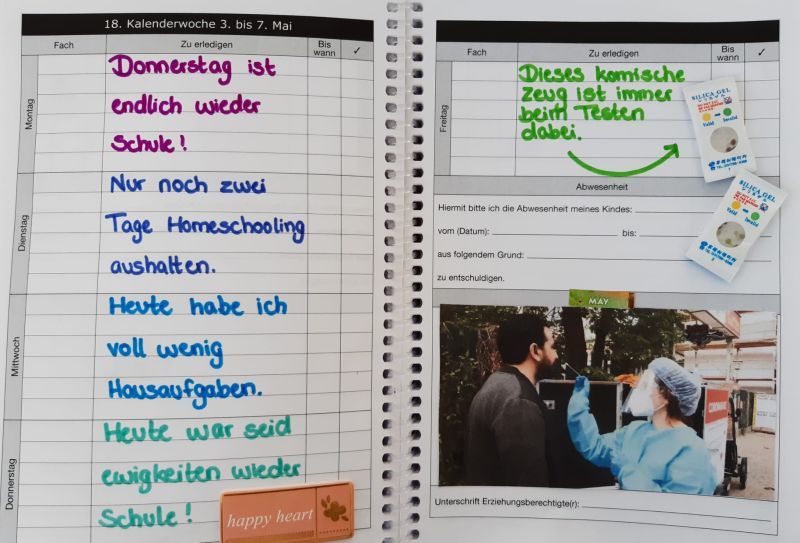 18. Kalenderwoche 3. bis 7. Mai
Fach
Zu erledigen
Bis wann
✓
Montag
Donnerstag ist
endlich wieder
Schule!
Dienstag
Nur noch zwei
Tage Homeschooling
aushalten.
Mittwoch
Heute habe ich
voll wenig
Hausaufgaben.
Donnerstag
Heute war seid
ewigkeiten wieder
Schule!
happy heart
Fach
Zu erledigen
Bis wann
✓
Freitag
Dieses komische
zeug ist immer
beim Testen
dabei.
SILICA GEL
Valid
Invalid
SILICA GEL
Valid
Invalid
Abwesenheit
Hiermit bitte ich die Abwesenheit meines Kindes:
vom (Datum): bis:
aus folgendem Grund:
zu entschuldigen.
MAY
Unterschrift Erziehungsberechtigte(r):